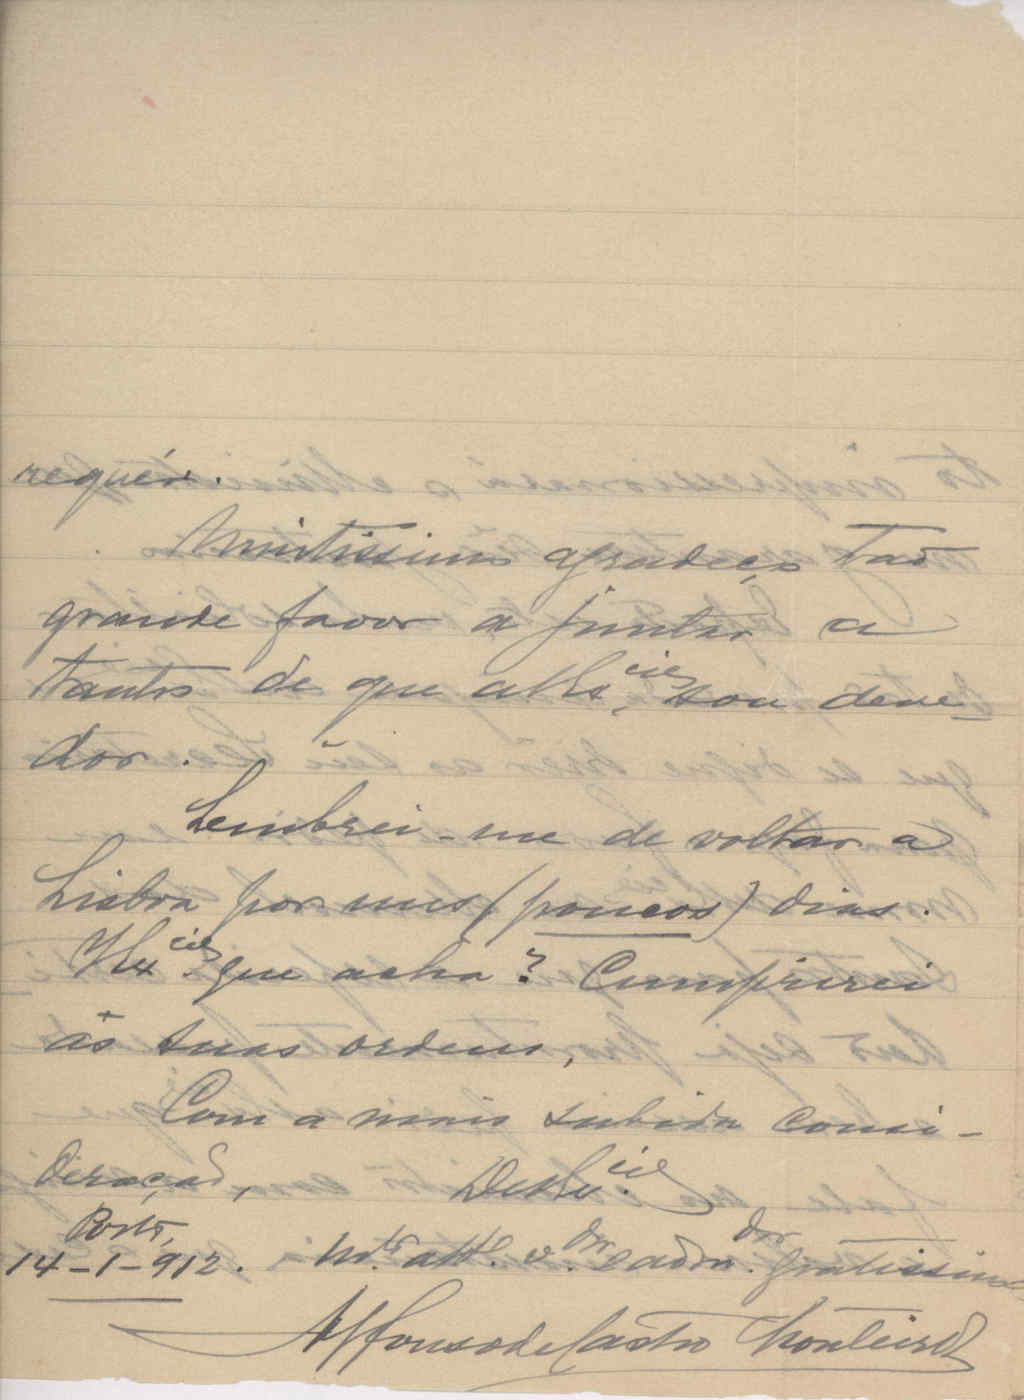 requér.
Muitissimo agradeço tão
grande favor a juntar a
tantos de que a V. Ex.cia sou deve-
dor.
Lembrei-me de voltar a
Lisboa por uns (poucos) dias.
V. Ex.cia que acha? Cumprirei
ás suas ordens,
Com a mais subida consi-
deração,
De V. Ex.cia
Porto,
14-1-912.
M.to att.o v.dor e admr.dor gratissimo
Affonso de Castro Monteiro